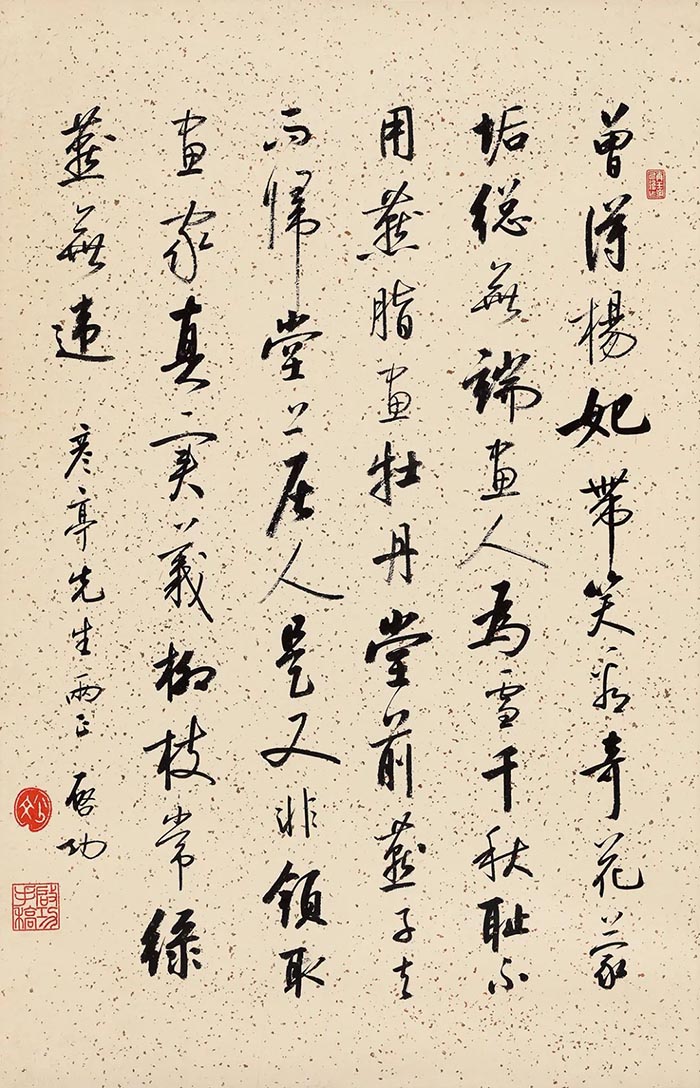 曾得楊妃帶笑看奇花蒙
垢總無端畫人為雪千秋耻不
用燕脂畫牡丹堂前燕子去
而歸堂上居人是又非領取
畫家真實義柳枝常綠
燕無違 彥亭先生兩正 啓功